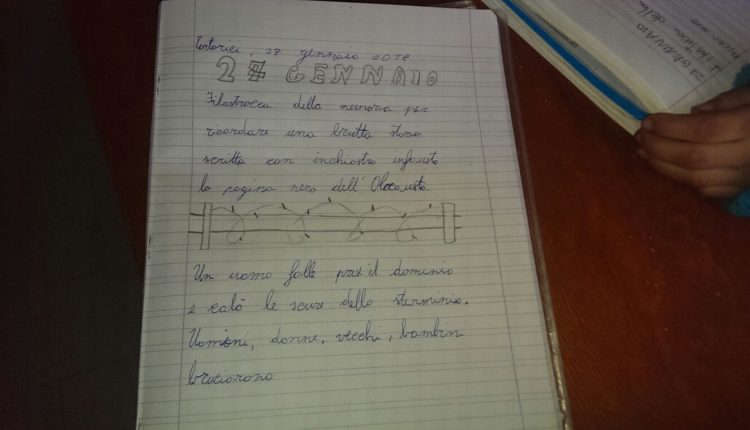 Tortorici, 27 gennaio 2018
27 GENNAIO
Filastrocca della memoria per
ricordare una brutta storia
scritta con inchiostro infausto
la pagina nera dell'Olocausto.
Un uomo folle prese il dominio
e calò le scure dello sterminio.
Uomini, donne, vecchi, bambini
bruciarono
27 GENNAIO